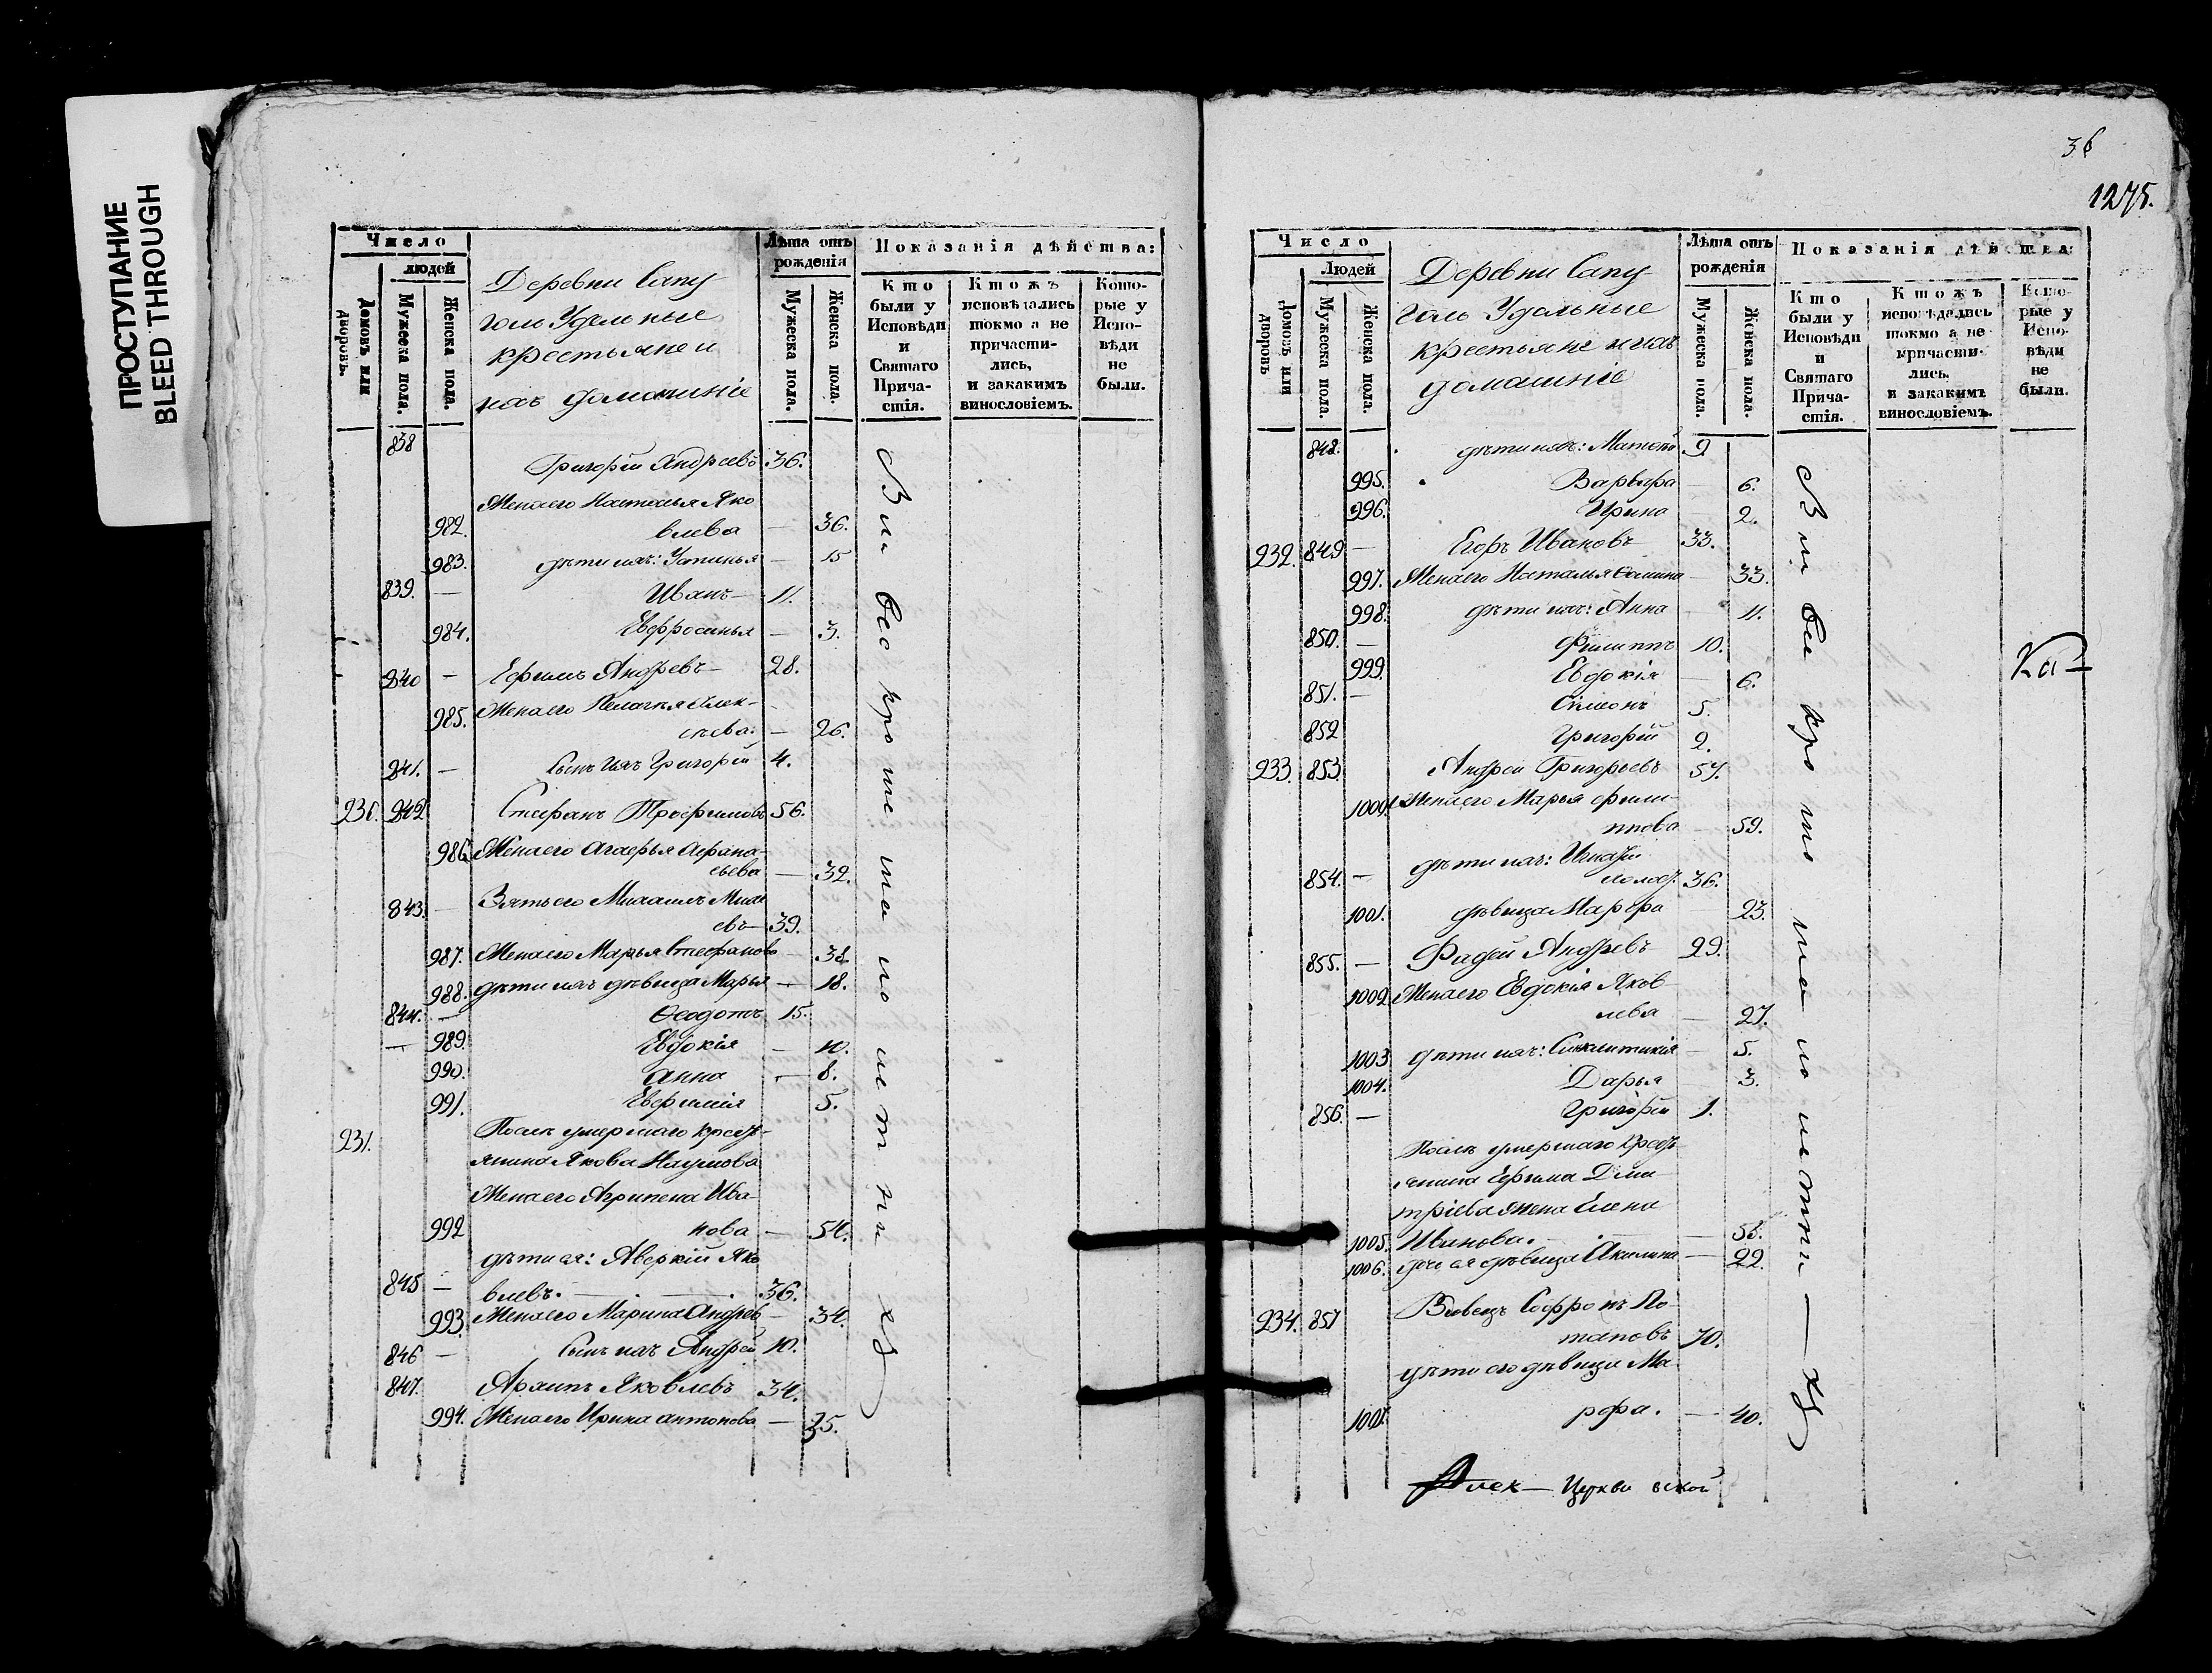 ПРОСТУПАНИЕ
BLEED THROUGH
Число
людей
Домовъ или дворовъ.
Мужеска пола.
Женска пола.
Деревни Сапу
голь Удельные
крестьяне и
ихъ домашніе
Лѣта отъ
рожденія
Мужеска пола.
Женска пола.
Показанія дѣйства:
Кто
были у
Исповѣди
и
Святаго
Прича-
стія.
Ктожъ
исповѣдались
токмо а не
причасти-
лись,
и закакимъ
винословіемъ.
Кото-
рые у
Испо-
вѣди
не
были.
838 Григорій Андреевъ 36.
Жена его Наталья Яко
982. влева — 36.
983. дѣти ихъ: Устинья — 15
839. — Иванъ — 11.
984. Евфросинья — 3.
840 — Ефимъ Андревъ — 28.
985. Жена его Пелагея Алек-
сѣва: — 26.
841. — Сынъ ихъ Григорій 4.
842 Стефанъ Трофимовъ 56.
986. Жена его Агафья Афана-
сьева — 32.
843. — Зять его Михаилъ
евъ — 39.
987. Жена его Марья Стефанова — 38
988. дѣти ихъ дѣвица Марья — 18.
844. — Ѳеодотъ 15.
— 989. Евдокія — 10.
990. Анна — 8.
991. Евфимія 5.
231. Послѣ умершаго крестъ-
янина Якова Наумова
Жена его Агрипена Ива
992 нова — 54.
дѣти ея: Аверкій Яко
845 — влевъ. — 36.
993. Жена его Марина Андрев — 34.
846 — Сынъ ихъ Андрей 10.
847. Архипъ Яковлевъ 34.
994. Жена его Ирина Антонова — 35.
36
1275.
Число
Людей
Домовъ или дворовъ
Мужеска пола.
Женска пола.
Деревни Сапу
голь Удальные
крестьяне и ихъ
домашніе
Лѣта отъ
рожденія
Мужеска пола.
Женска пола.
Показанія дѣйства:
Кто
были у
Исповѣди
и
Святаго
Прича-
стія.
Ктожъ
исповѣдались
токмо а не
причасти-
лись.
и закакимъ
винословіемъ.
Кото-
рые у
Испо-
вѣди
не
были.
848. дѣти ихъ: Матвѣй 9.
995. Варвара — 6.
996. Ирина 2.
232. 849 — Егоръ Ивановъ 33.
997. Жена его Наталья — 33.
998. дѣти ихъ: Анна — 11.
850. — Филиппъ 10.
999. Евдокія — 6.
851. — Симеонъ 5.
852 Григорій 2.
233. 853. Андрей Григорьевъ 57.
1000. Жена его Марья Фили-
ппова — 59.
дѣти ихъ: Игнатій
854. — холост. 36.
1001. дѣвица Марфа 23.
855. — Фадей Андревъ 29.
1002. Жена его Евдокія Яков-
лева — 27.
1003 дѣти ихъ: Синклитикія — 5.
1004. Дарья — 3.
856. — Григорій 1.
Послѣ умершаго крестъ
янина Ефима Дми
тріева жена Елена
1005. Иванова. — 55.
1006. дочь ея дѣвица Акилина — 22.
234. 857 Вдовецъ Софронъ По-
таповъ 70.
дѣти его дѣвица Ма
рфа. — 40.